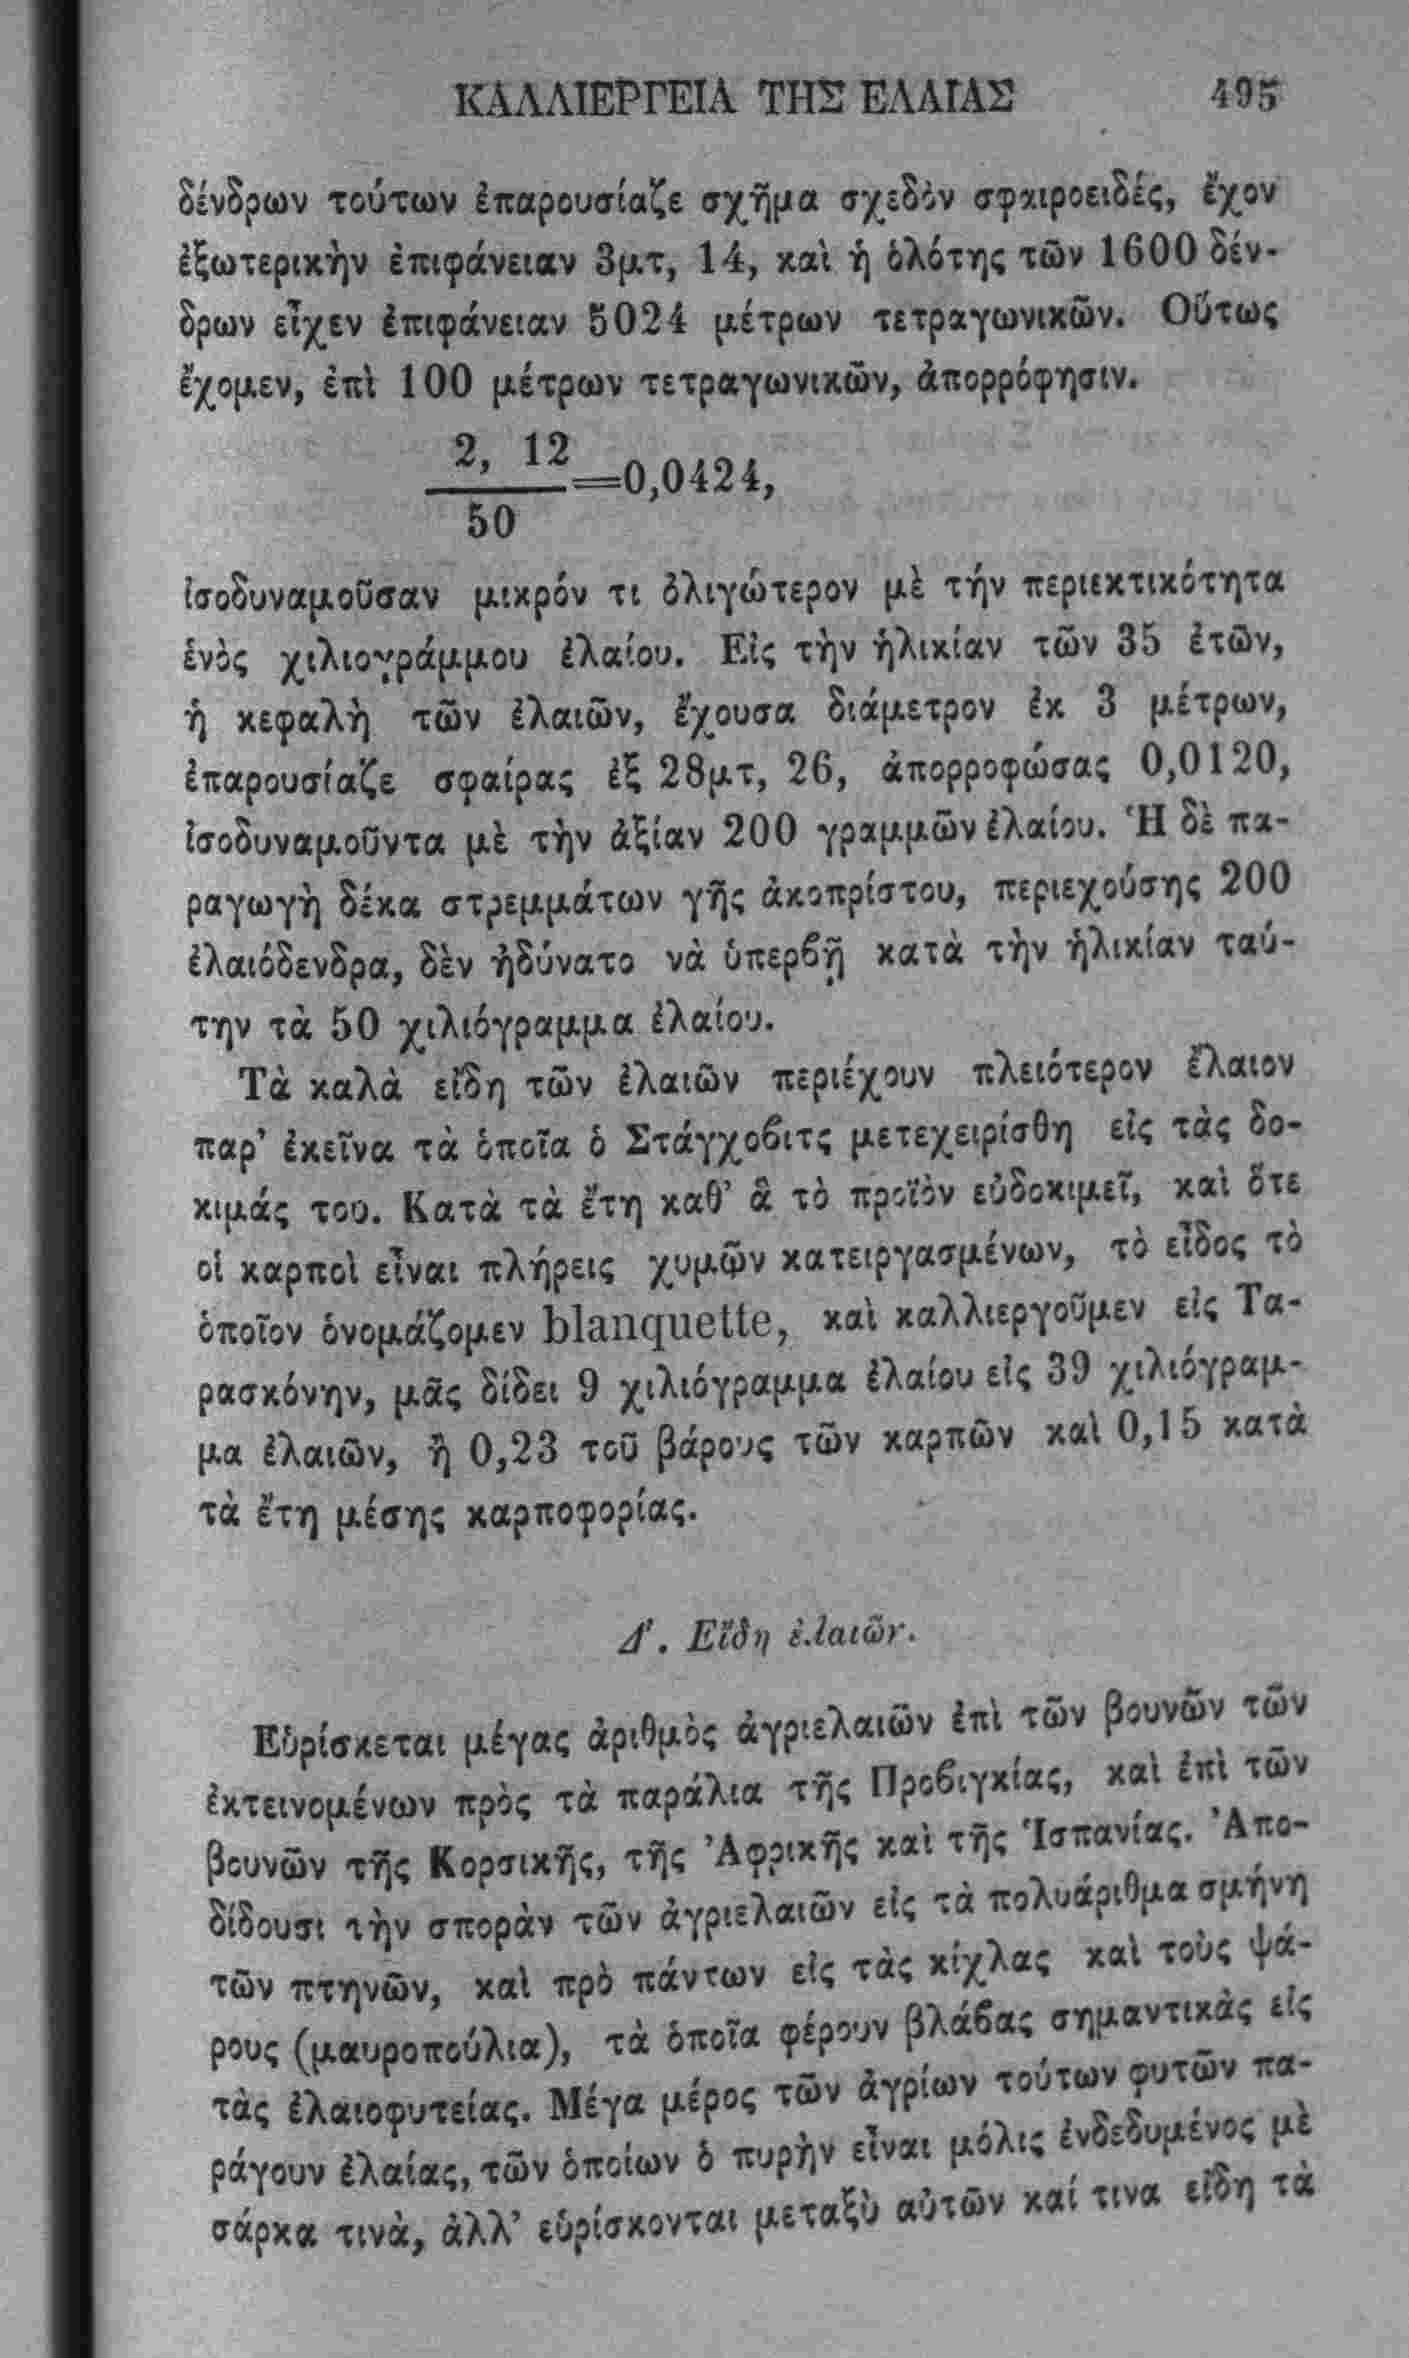 ΚΑΛΛΙΕΡΓΕΙΑ ΤΗΣ ΕΛΑΙΑΣ 495
δένδρων τούτων ἐπαρουσίαζε σχῆμα σχεδὸν σφαιροειδές, ἔχον
ἐξωτερικὴν ἐπιφάνειαν 3μτ, 14, καὶ ἡ ὁλότης τῶν 1600 δέν-
δρων εἶχεν ἐπιφάνειαν 5024 μέτρων τετραγωνικῶν. Οὕτως
ἔχομεν, ἐπὶ 100 μέτρων τετραγωνικῶν, ἀπορρόφησιν.
2, 12
=0,0424,
50
ἰσοδυναμοῦσαν μικρόν τι ὀλιγώτερον μὲ τήν περιεκτικότητα
ἑνὸς χιλιογράμμου ἐλαίου. Εἰς τὴν ἡλικίαν τῶν 35 ἐτῶν,
ἡ κεφαλὴ τῶν ἐλαιῶν, ἔχουσα διάμετρον ἐκ 3 μέτρων,
ἐπαρουσίαζε σφαίρας ἐξ 28μτ, 26, ἀπορροφώσας 0,0120,
ἰσοδυναμοῦντα μὲ τὴν ἀξίαν 200 γραμμῶν ἐλαίου. Ἡ δὲ πα-
ραγωγὴ δέκα στρεμμάτων γῆς ἀκοπρίστου, περιεχούσης 200
ἐλαιόδενδρα, δὲν ἠδύνατο νὰ ὑπερβῇ κατὰ τὴν ἡλικίαν ταύ-
την τὰ 50 χιλιόγραμμα ἐλαίου.
Τὰ καλὰ εἴδη τῶν ἐλαιῶν περιέχουν πλειότερον ἔλαιον
παρ’ ἐκεῖνα τὰ ὁποῖα ὁ Στάγχοβιτς μετεχειρίσθη εἰς τὰς δο-
κιμάς του. Κατὰ τὰ ἔτη καθ’ ἃ τὸ προϊὸν εὐδοκιμεῖ, καὶ ὅτε
οἱ καρποὶ εἶναι πλήρεις χυμῶν κατειργασμένων, τὸ εἶδος τὸ
ὁποῖον ὀνομάζομεν blanquette, καὶ καλλιεργοῦμεν εἰς Τα-
ρασκόνην, μᾶς δίδει 9 χιλιόγραμμα ἐλαίου εἰς 39 χιλιόγραμ-
μα ἐλαιῶν, ἢ 0,23 τοῦ βάρους τῶν καρπῶν καὶ 0,15 κατὰ
τὰ ἔτη μέσης καρποφορίας.
Δ’. Εἴδη ἐλαιῶν.
Εὑρίσκεται μέγας ἀριθμὸς ἀγριελαιῶν ἐπὶ τῶν βουνῶν τῶν
ἐκτεινομένων πρὸς τὰ παράλια τῆς Προβιγκίας, καὶ ἐπὶ τῶν
βουνῶν τῆς Κορσικῆς, τῆς Ἀφρικῆς καὶ τῆς Ἱσπανίας. Ἀπο-
δίδουσι τὴν σπορὰν τῶν ἀγριελαιῶν εἰς τὰ πολυάριθμα σμήνη
τῶν πτηνῶν, καὶ πρὸ πάντων εἰς τὰς κίχλας καὶ τοὺς ψά-
ρους (μαυροπούλια), τὰ ὁποῖα φέρουν βλάβας σημαντικὰς εἰς
τὰς ἐλαιοφυτείας. Μέγα μέρος τῶν ἀγρίων τούτων φυτῶν πα-
ράγουν ἐλαίας, τῶν ὁποίων ὁ πυρὴν εἶναι μόλις ἐνδεδυμένος μὲ
σάρκα τινὰ, ἀλλ’ εὑρίσκονται μεταξὺ αὐτῶν καί τινα εἴδη τὰ